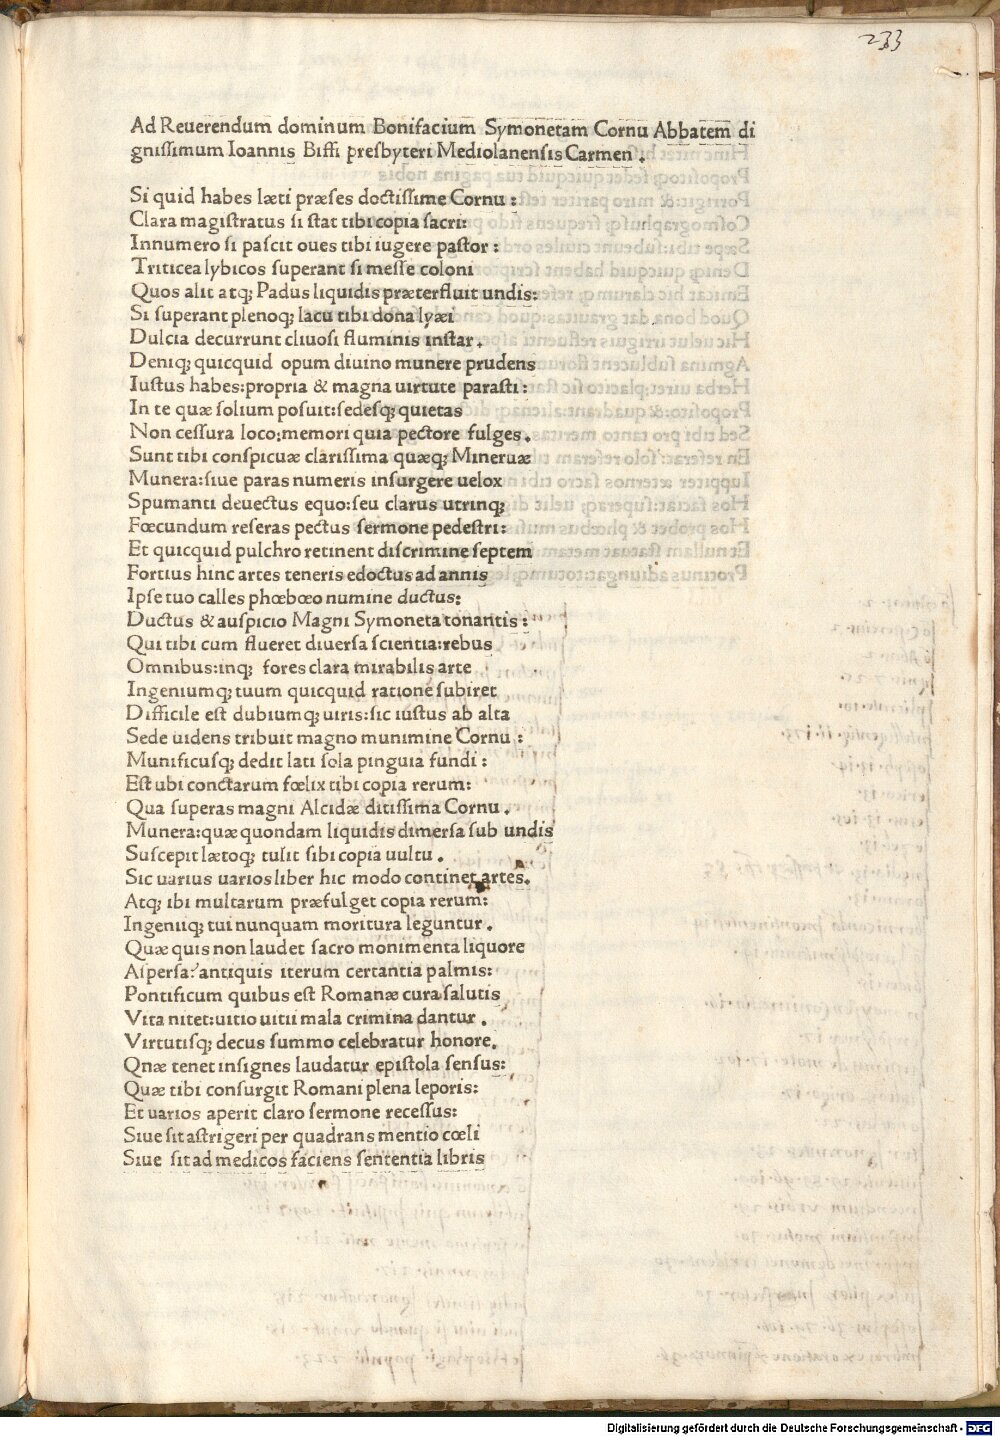 233
Ad Reuerendum dominum Bonifacium Symonetam Cornu Abbatem di
gniſſimum Ioannis Biffi presbyteri Mediolanensis Carmen .
Si quid habes læti præſes doctiſſime Cornu :
Clara magiſtratus ſi ſtat tibi copia ſacri:
Innumero ſi paſcit oues tibi iugere paſtor :
Triticea lybicos ſuperant ſi meſſe coloni
Quos alit atq; Padus liquidis præterfluit undis:
Si ſuperant plenoq; lacu tibi dona lyæi
Dulcia decurrunt cliuoſi fluminis inſtar .
Deniq; quicquid opum diuino munere prudens
Iuſtus habes:propria & magna uirtute paraſti:
In te quæ ſolium poſuit:ſedeſq; quietas
Non ceſſura loco:memori quia pectore fulges.
Sunt tibi conſpicuæ clariſſima quæq; Mineruæ
Munera:ſiue paras numeris inſurgere uelox
Spumanti deuectus equo:ſeu clarus utrinq;
Fœcundum reſeras pectus ſermone pedeſtri:
Et quicquid pulchro retinent diſcrimine ſeptem
Fortius hinc artes teneris edoctus ad annis
Ipſe tuo calles phœbœo numine ductus:
Ductus & auſpicio Magni Symoneta tonantis :
Qui tibi cum flueret diuerſa ſcientia:rebus
Omnibus:inq; fores clara mirabilis arte
Ingeniumq; tuum quicquid ratione ſubiret
Difficile eſt dubiumq; uiris:ſic iuſtus ab alta
Sede uidens tribuit magno munimine Cornu :
Munificuſq; dedit lati ſola pinguia fundi :
Eſt ubi conctarum fœlix tibi copia rerum:
Qua ſuperas magni Alcidæ ditiſſima Cornu .
Munera:quæ quondam liquidis dimerſa ſub undis
Suſcepit lætoq; tulit ſibi copia uultu .
Sic uarius uarios liber hic modo continet artes.
Atq; ibi multarum præfulget copia rerum:
Ingeniiq; tui nunquam moritura leguntur .
Quæ quis non laudet ſacro monimenta liquore
Aſperſa?antiquis iterum certantia palmis:
Pontificum quibus eſt Romanæ cura ſalutis
Vita nitet:uitio uitii mala crimina dantur .
Virtutiſq; decus ſummo celebratur honore.
Qnæ tenet inſignes laudatur epiſtola ſenſus:
Quæ tibi conſurgit Romani plena leporis:
Et uarios aperit claro ſermone receſſus:
Siue ſit aſtrigeri per quadrans mentio cœli
Siue ſit ad medicos faciens ſententia libris
Digitalisierung gefördert durch die Deutsche Forschungsgemeinschaft - DFG